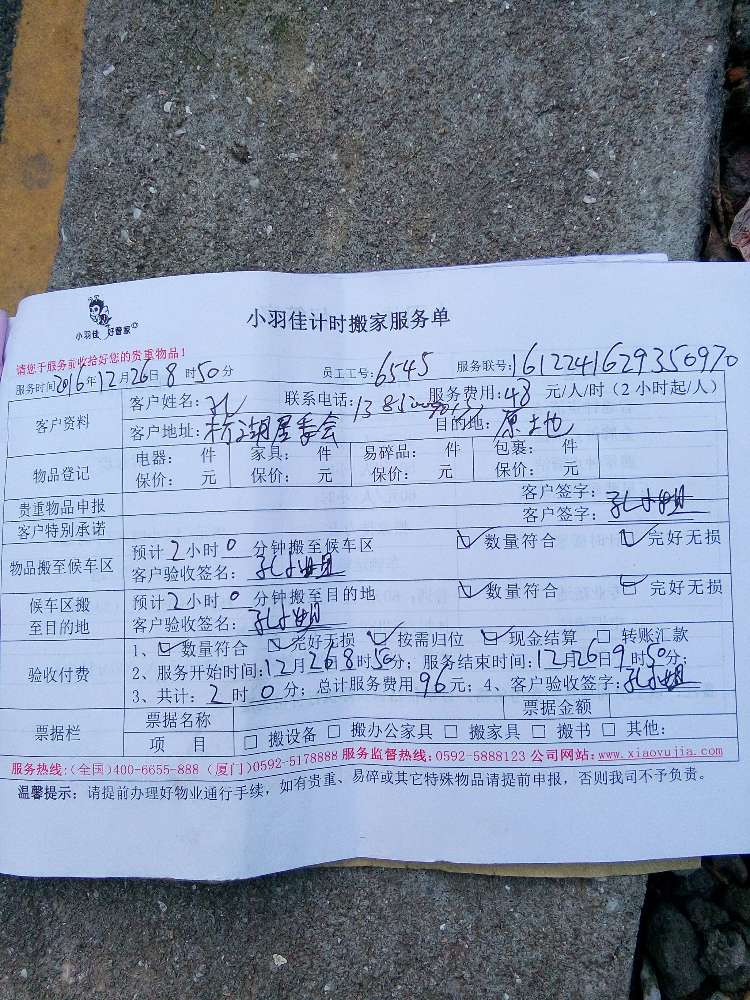 小羽佳 好管家
小羽佳计时搬家服务单
请您于服务前收拾好您的贵重物品！
服务时间2016年12月26日8时50分 员工工号：6545 服务联号：1612241629350970
客户资料 客户姓名：孔 联系电话： 服务费用：48元/人/时（2小时起/人）
客户地址：湖居委会 目的地：原地
物品登记 电器： 件 家具： 件 易碎品： 件 包裹： 件
保价： 元 保价： 元 保价： 元 保价： 元
贵重物品申报 客户签字：
客户特别承诺 客户签字：孔小姐
物品搬至候车区 预计2小时0分钟搬至候车区 ☑数量符合 ☑完好无损
客户验收签名：孔小姐
候车区搬至目的地 预计2小时0分钟搬至目的地 ☑数量符合 ☑完好无损
客户验收签名：孔小姐
验收付费 1、☑数量符合 ☑完好无损 ☑按需归位 ☑现金结算 □转账汇款
2、服务开始时间：12月26日8时50分；服务结束时间：12月26日9时50分；
3、共计：2时0分；总计服务费用96元；4、客户验收签字：孔小姐
票据栏 票据名称 票据金额
项 目 □搬设备 □搬办公家具 □搬家具 □搬书 □其他：
服务热线：(全国)400-6655-888 (厦门)0592-5178888 服务监督热线：0592-5888123 公司网站：www.xiaoyujia.com
温馨提示：请提前办理好物业通行手续，如有贵重、易碎或其它特殊物品请提前申报，否则我司不予负责。